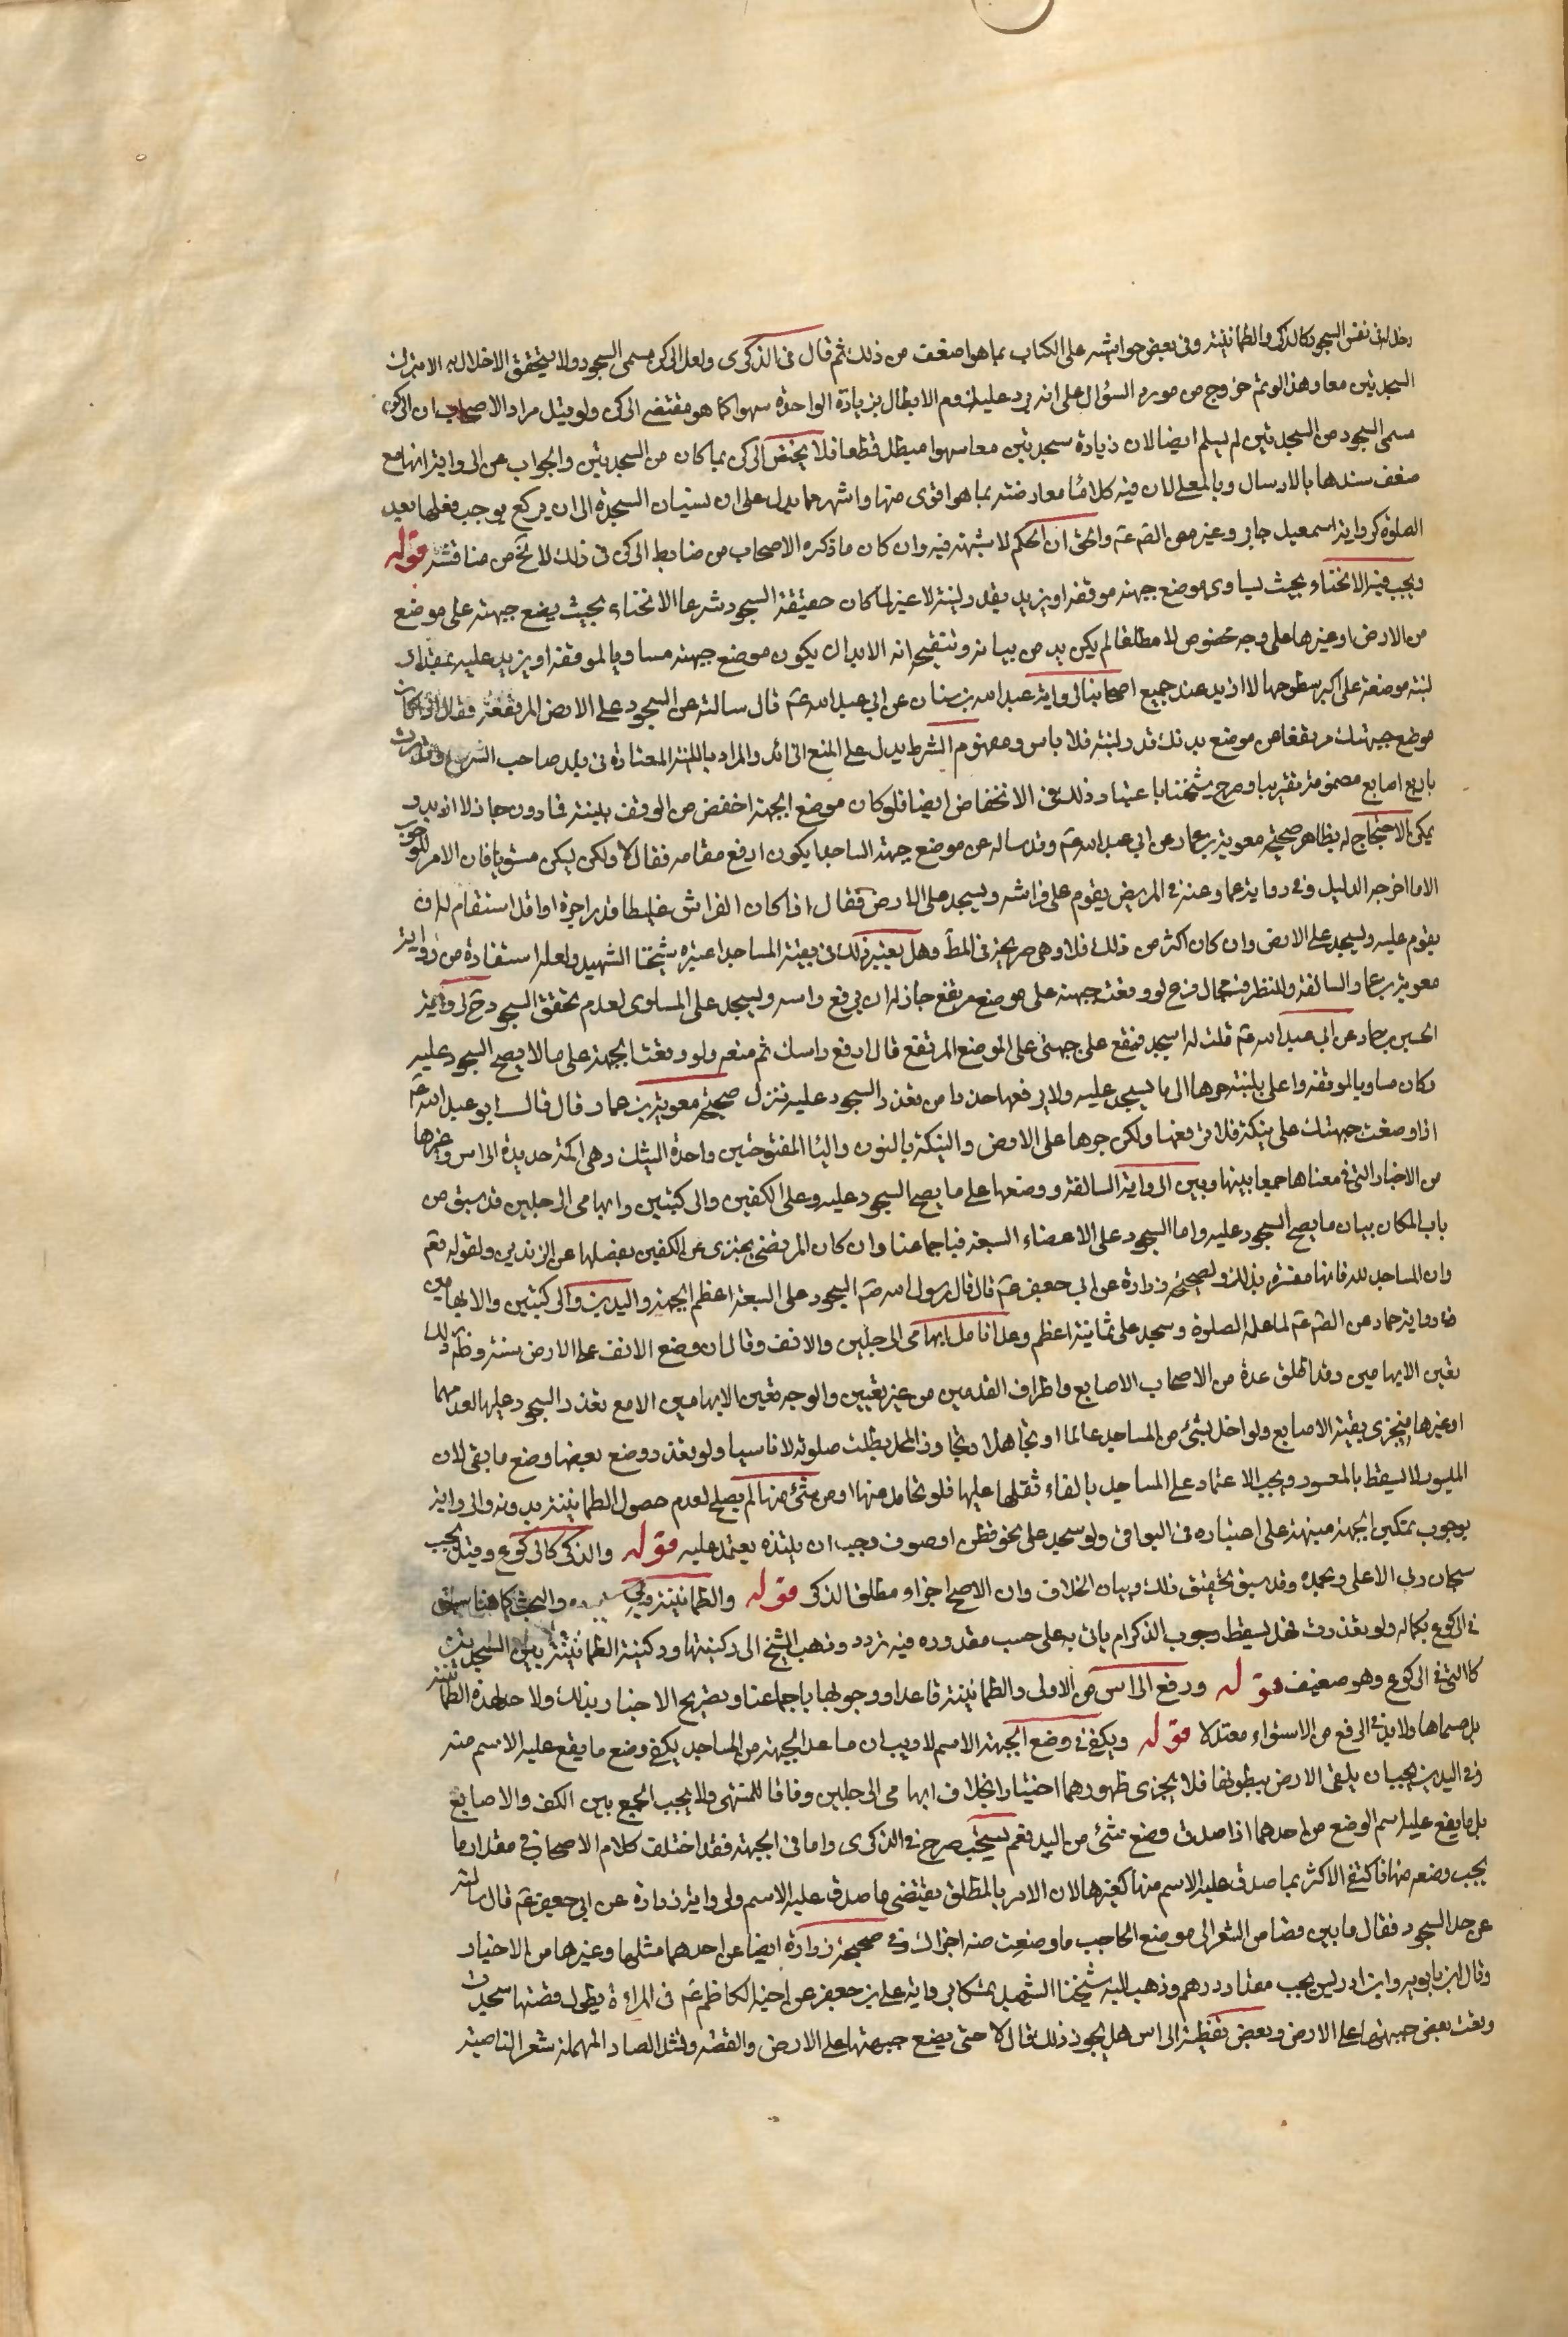 دخل له فى نفس السجود كالذكر والطمانينة وفى بعض حواشيه على الكتاب بما هو اضعف من ذلك ثم قال فى الذكرى ولعل الركن مسمى السجود ولا يتحقق الاخلال به الا بترك
السجدتين معا وهذا لو تم خروج من مورد السؤال على انه يرد عليك لزوم الابطال بزيادة الواحدة سهوا كما هو مقتضى الركن ولو قيل مراد الاصحاب ان الركن
مسمى السجود من السجدتين لم يسلم ايضا لان زيادة سجدتين معا سهوا مبطل قطعا فلا يختص الركن بما كان من السجدتين والجواب عن الرواية انها مع
ضعف سندها بالارسال وبالمعلى لان فيه كلاما معارضته بما هو اقوى منها واشهر مما يدل على ان نسيان السجدة الى ان يركع يوجب فعلها بعد
الصلوة كرواية اسمعيل جابر وغيره عن الصّ عَم والحق ان الحكم لا شبهة فيه وان كان ما ذكره الاصحاب من ضابط الركن فى ذلك لا يخ من مناقشة قوله
ويجب فيه الانحناء بحيث يساوى موضع جبهته موقفه او يزيد بقدر لبنة لا غير لما كان حقيقة السجود شرعا الانحناء بحيث يضع جبهته على موضع
من الارض او غيرها على وجه مخصوص لا مطلقا لم يكن بد من بيانه وتنقيحه انه لابد ان يكون موضع جبهته مساويا لموقفه او يزيد عليه بمقدار
لبنة موضعة على اكبر سطوحها لا ازيد عند جميع اصحابنا لرواية عبد الله بن سنان عن ابي عبد الله عَم قال سالته عن السجود على الارض المرتفعة فقال اذا كان
موضع جبهتك مرتفعا من موضع بدنك قدر لبنة فلا باس ومفهوم الشرط يدل على المنع الزائد والمراد باللبنة المعتادة فى بلد صاحب الشرع وقدرت
باربع اصابع مضمومة تقريبا وصرح شيخنا باعتبار ذلك فى الانخفاض ايضا فلو كان موضع الجبهة اخفض من الموقف بلبنة فما دون جاز لا ازيد و
يمكن الاحتجاج له بظاهر صحيحة معوية بن عمار عن ابي عبد الله عَم وقد ساله عن موضع جبهة الساجد ايكون ارفع مقامه فقال لا ولكن ليكن مستويا فان الامر للوجوب
الا ما اخرجه الدليل وفى رواية عمار عنه فى المريض يقوم على فراشه ويسجد على الارض فقال اذا كان الفراش غليظا قدر اجرة او اقل استقام له ان
يقوم عليه ويسجد على الارض وان كان اكثر من ذلك فلا وهى صريحة فى المط وهل يعتبر ذلك فى بقية المساجد اعتبره شيخنا الشهيد ولعله استفادة من رواية
معوية بن عمار السالفة وللنظر فيه مجال فرع لو وقعت جبهته على موضع مرتفع جاز له ان يرفع راسه ويسجد على المساوى لعدم تحقق السجود ح لرواية
الحسين بن حماد عن ابي عبد الله عَم قلت له اسجد فتقع على جبهتى على الموضع المرتفع قال ارفع راسك ثم ضعه ولو وقعت الجبهة على ما لا يصح السجود عليه
وكان مساويا لموقفه واعلى بلبنة جرها الى ما يسجد عليه ولا يرفعها حذرا من تعدد السجود عليه تنزل صحيحة معوية بن عمار قال قال ابو عبد الله عَم
اذا وضعت جبهتك على نبكة فلا ترفعها ولكن جرها على الارض والنبكة بالنون والبا المفتوحتين واحدة النبك وهى اكمة حديدة الراس وغيرها
من الاخبار التى فى معناها جمعا بينها وبين الرواية السالفة ووضعها على ما يصح السجود عليه وعلى الكفين والركبتين وابهامى الرجلين قد سبق من
باب المكان بيان ما يصح السجود عليه واما السجود على الاعضاء السبعة فباجماعنا وان كان المرتضى يجتزى عن الكفين بمفصلهما عن الزندين ولقوله تعم
وان المساجد لله فانها مفسرة بذلك ولصحيحة زرارة عن ابي جعفر عَم قال قال رسول الله صَم السجود على السبعة اعظم الجبهة واليدين والركبتين والابهامين
وفى رواية حماد عن الصّ عَم لما علمه الصلوة وسجد على ثمانية اعظم وعد انامل ابهامى الرجلين والانف وقال ان وضع الانف على الارض سنة وظهر ذلك
تعين الابهامين وقد اطلق عدة من الاصحاب الاصابع واطراف القدمين من غير تعيين والوجه تعين الابهامين الا مع تعذر السجود عليهما لعدمهما
او غيرها فيجزى بقية الاصابع ولو اخل بشئ من المساجد عالما او جاهلا وتجاوز المحل بطلت صلوته لا ناسيا ولو تعذر وضع بعضها وضع ما بقى لان
الميسور لا يسقط بالمعسور ويجب الاعتماد على المساجد بالقاء ثقلها عليها فلو تحامل منها او من شئ منها لم يصح لعدم حصول الطمانينة بدونه ولرواية
بوجوب تمكين الجبهة منبهة على اعتباره فى البواقى ولو سجد على نحو قطن او صوف وجب ان يلبده يعتمد عليه قوله والذكر كالركوع وقيل يجب
سبحان ربى الاعلى وبحمده وقد سبق تحقيق ذلك وبيان الخلاف وان الاصح اجزاء مطلق الذكر قوله والطمانينة والبحث كما هنا سبق
فى الركوع بكماله ولو تعذرت فهل يسقط وجوب الذكر ام ياتى به على حسب مقدوره فيه تردد وذهب الشيخ الى ركنيتها وركنية الطمانينة بين السجدتين
كالتى فى الركوع وهو ضعيف قوله ورفع الراس من الاولى والطمانينة قاعدا ووجوبها باجماعنا وتصريح الاخبار بذلك ولا حد لهذه الطمانينة
بل مسماها ولابد فى الرفع من الاستواء معتدلا قوله ويكفى فى وضع الجبهة الاسم لا ريب ان ما عدا الجبهة من المساجد يكفى وضع ما يقع عليه الاسم منه
وفى اليدين يجب ان يلقى الارض ببطونها فلا يجزى ظهورهما اختيارا بخلاف ابهامى الرجلين وفاقا للمنتهى ولا يجب الجمع بين الكف والاصابع
بل ما يقع عليه اسم الوضع من احدهما اذا صدق وضع شئ من اليد نعم يستحب صرح فى الذكرى واما فى الجبهة فقد اختلف كلام الاصحاب فى مقدار ما
يجب وضعه منها فاكتفى الاكثر بما صدق عليه الاسم منها كغيرها لان الامر بالمطلق يقتضى ما صدق عليه الاسم ولرواية زرارة عن ابي جعفر عَم قال سالته
عن حد السجود فقال ما بين قصاص الشعر الى موضع الحاجب ما وضعت منه اجزاك وفى صحيحة زرارة ايضا عن احدهما مثلها وغيرها من الاخبار
وقال ابن بابويه وابن ادريس يجب مقدار درهم وذهب اليه شيخنا الشهيد تمسكا برواية على بن جعفر عن اخيه الكاظم عَم فى المراة يطول قصتها سجدت
وقعت بعض جبهتها على الارض وبعض تغطيه الراس هل يجوز ذلك قال لا حتى يضع جبهتها على الارض والقصة بتشد الصاد المهملة شعر الناصية